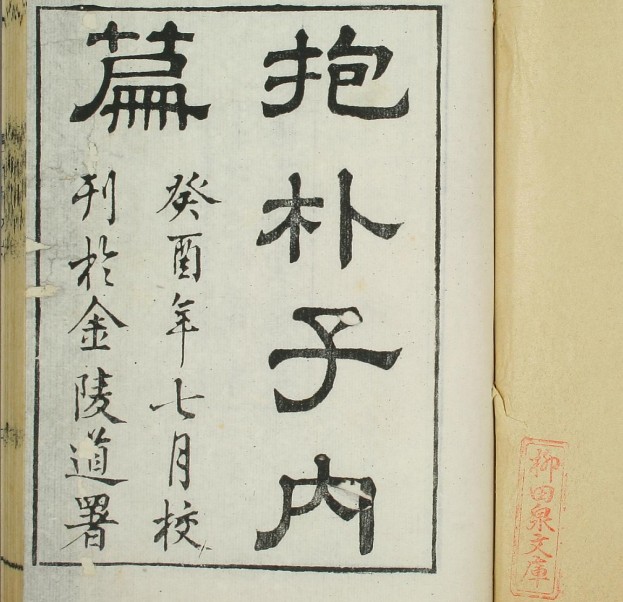 抱朴子内
篇
癸酉年七月校
刊於金陵道署
柳田泉文庫